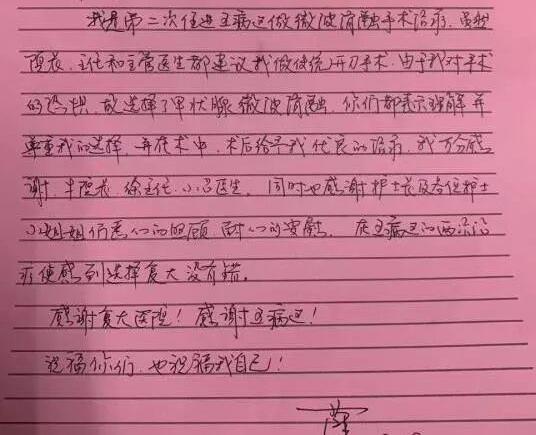 我是第二次住进五病区做微波消融手术治疗。虽然
院长、主任和主管医生都建议我做传统开刀手术,由于我对手术
的恐惧,故选择了甲状腺微波消融,你们都表示理解并
尊重我的选择,并在术中、术后给予我优良的治疗,我万分感
谢牛院长、徐主任、小吕医生。同时也感谢护士长及各位护士
小姐姐们悉心的照顾、耐心的安慰。在五病区的两次治
疗使感到选择复大没有错。
感谢复大医院!感谢五病区!
祝福你们,也祝福我自己!